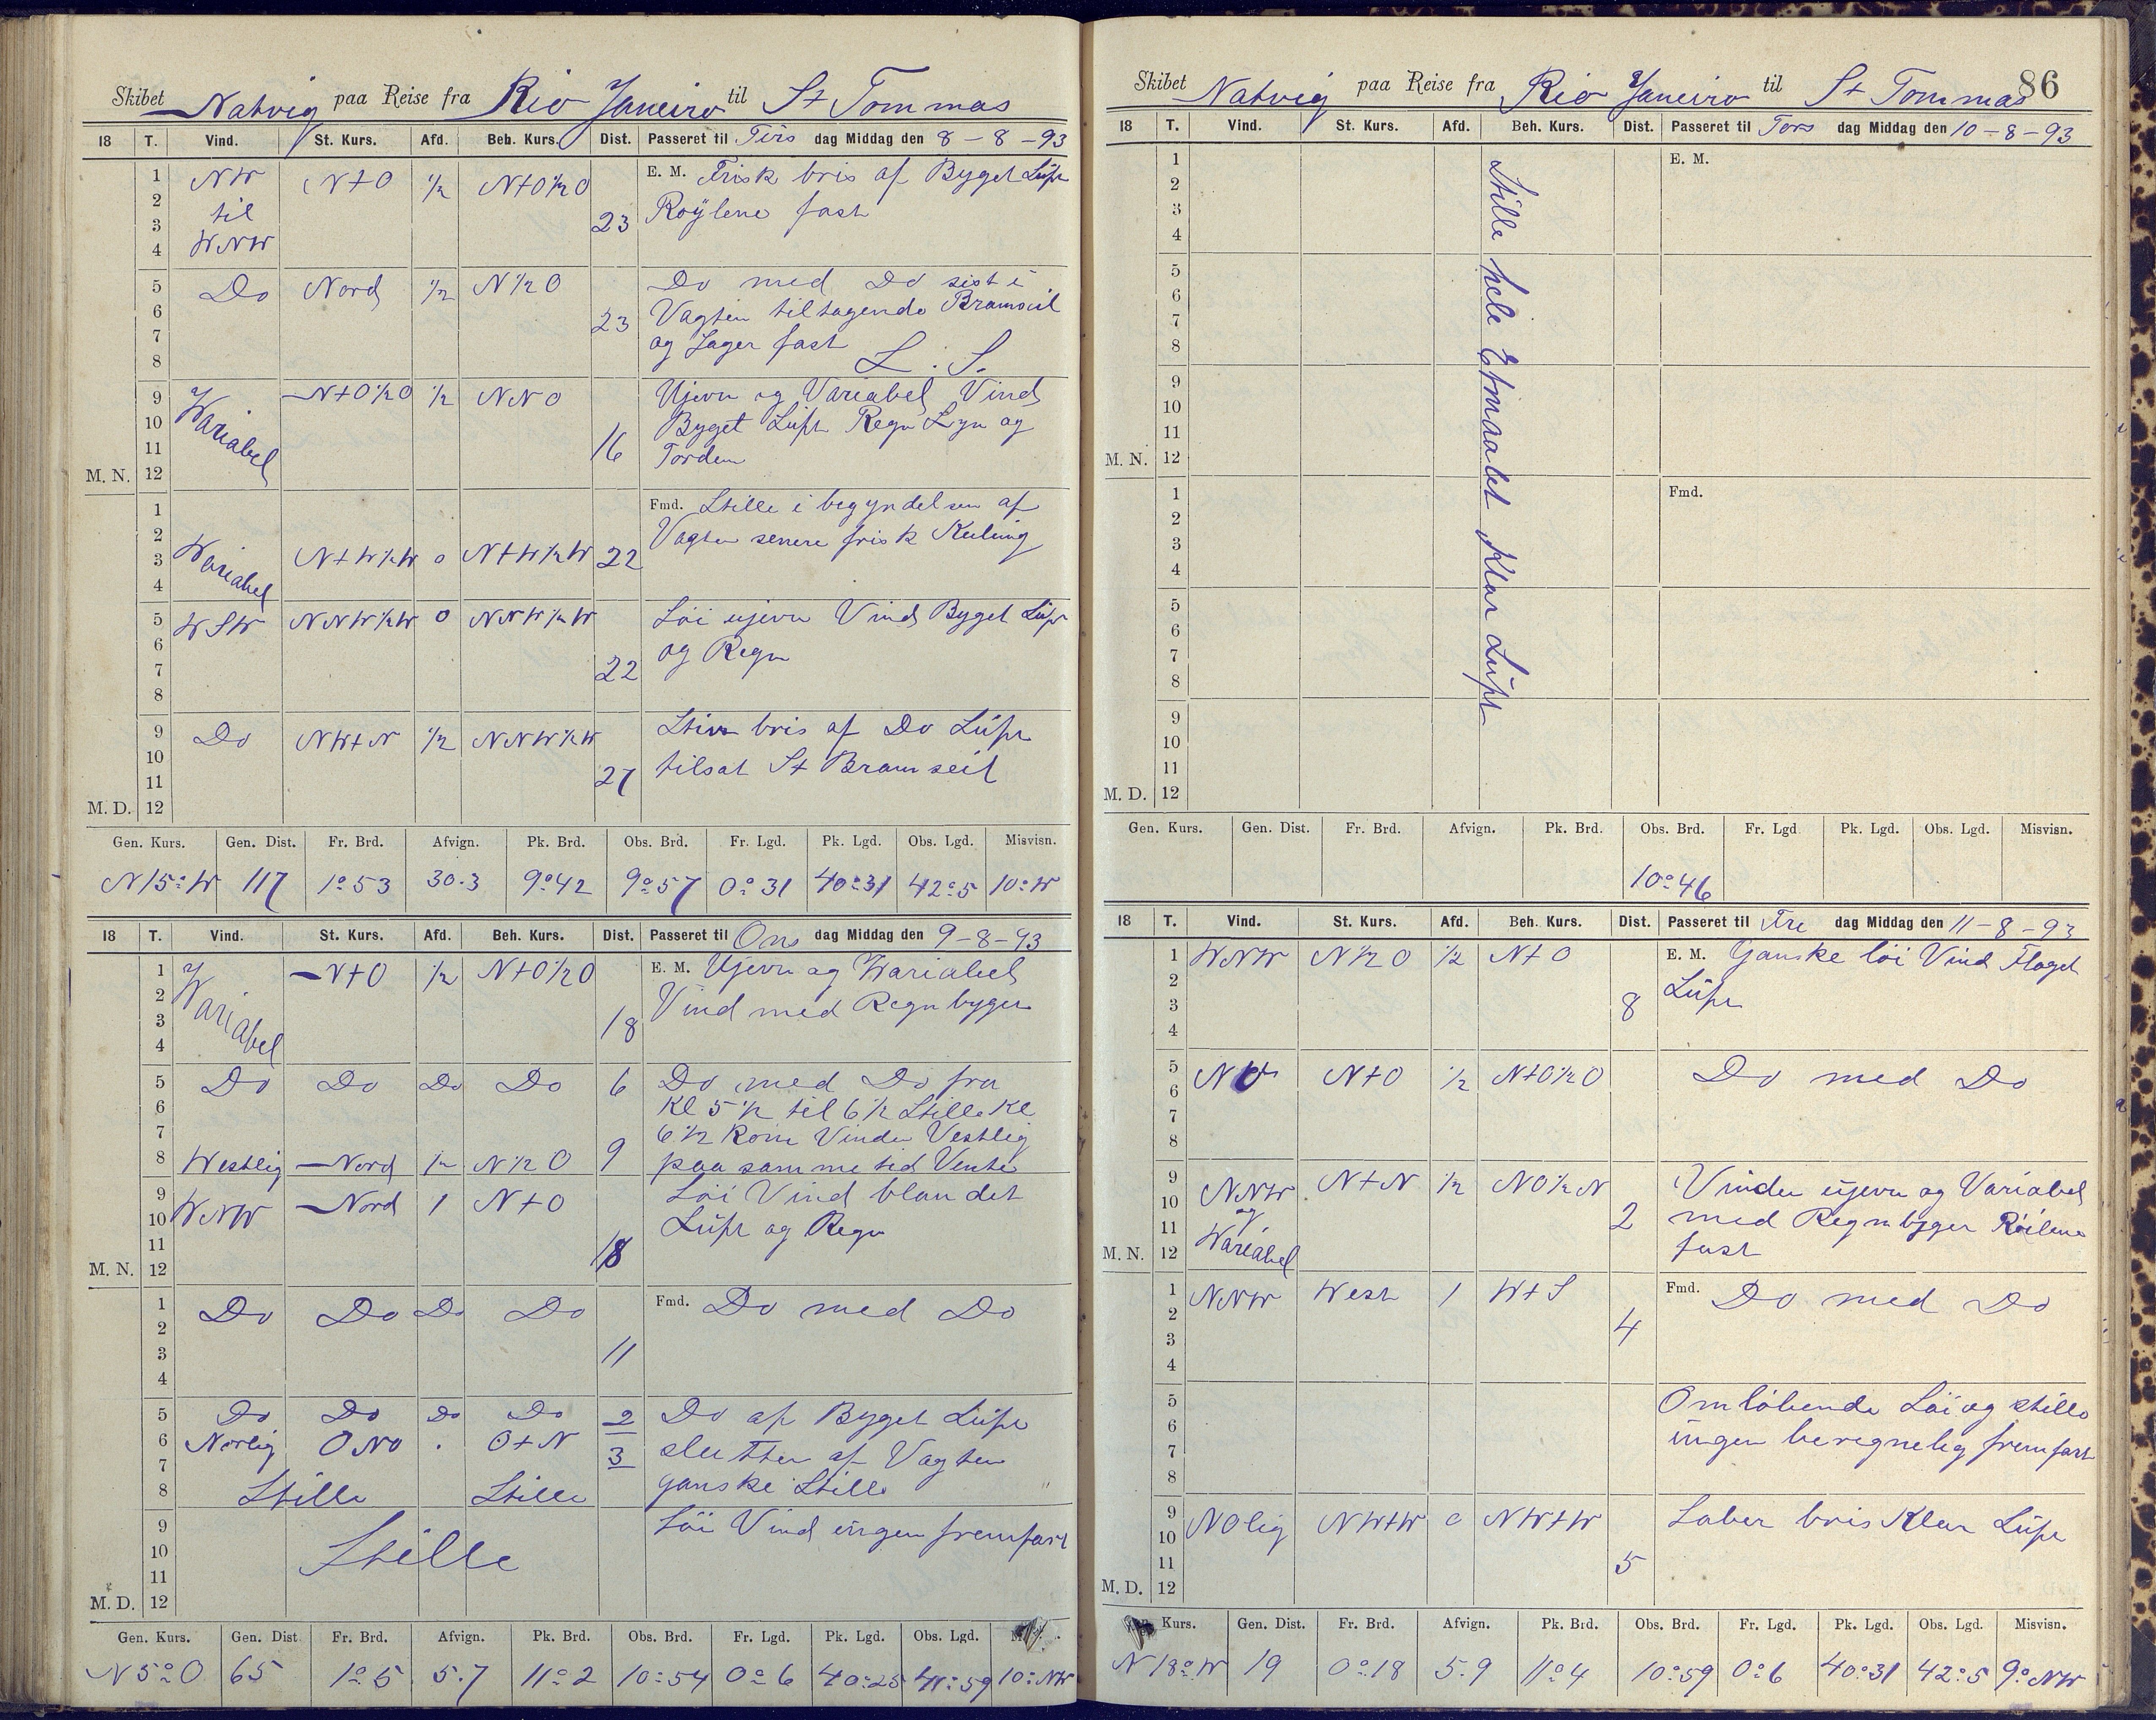 Skibet Natvig paa Reise fra Rio Janeiro til St Tommas
18 T. Vind. St. Kurs. Afd. Beh. Kurs. Dist. Passeret til Tirs dag Middag den 8-8-93
1 NW N+O ½ N+O½O E. M. Frisk bris af Byget Luft
2 til 23 Røÿlene fast
3 WNW
4
5 Do Nord ½ N½O Do med Do sist i
6 23 Vagten tiltagende Bramseil
7 og Jager fast
8 L. S.
9 Wariabel N+O½O ½ NNO Ujevn og Variabel Vind
10 Byget Luft Regn Lyn og
11 16 Torden
M. N. 12
1 Fmd. Stille i begyndelsen af
2 Vagten senere frisk Kuling
3 Wariabel N+W½W 0 N+W½W 22
4
5 WSW NNW½W 0 NNW½W Løi ujevn Vind Byget Luft
6 og Regn
7 22
8
9 Do NW+N ½ NNW½W Stiv bris af Do Luft
10 27 tilsat St Bramseil
11
M. D. 12
Gen. Kurs. Gen. Dist. Fr. Brd. Afvign. Pk. Brd. Obs. Brd. Fr. Lgd. Pk. Lgd. Obs. Lgd. Misvisn.
N15°W 117 1°53 30.3 9°42 9°57 0°31 40°31 42°5 10°W
18 T. Vind. St. Kurs. Afd. Beh. Kurs. Dist. Passeret til Ons dag Middag den 9-8-93
1 Wariabel N+O ½ N+O½O E. M. Ujevn og Wariabel
2 Vind med Regnbyger
3 18
4
5 Do Do Do Do 6 Do med Do fra
6 Kl 5½ til 6½ Stille Kl
7 6½ Kom Vinden Vestlig
8 Westlig Nord ½ N½O 9 paa samme tid Vente
9 WNW Nord 1 N+O Løi Vind blandet
10 Luft og Regn
11 18
M. N. 12
1 Do Do Do Do Fmd. Do med Do
2
3 11
4
5 Do Do Do Do 2 Do af Byget Luft
6 Norlig ONO . O+N 3 slutten af Vagten
7
8 Stille Stille ganske Stille
9 Løi Vind ingen fremfart
10 Stille
11
M. D. 12
Gen. Kurs. Gen. Dist Fr. Brd. Afvign. Pk. Brd. Obs. Brd. Fr. Lgd. Pk. Lgd. Obs. Lgd.
N5°O 65 1°5 5.7 11°2 10°54 0°6 40°25 41°59 10°NW
86
Skibet Natvig paa Reise fra Rio Janeiro til St Tommas
18 T. Vind. St. Kurs. Afd. Beh. Kurs. Dist. Passeret til Tors dag Middag den 10-8-93
1 E. M.
2
3
4
5
6
7
8
9
10
11
M. N. 12
Stille hele Etmaalet Klar Luft
1 Fmd.
2
3
4
5
6
7
8
9
10
11
M. D. 12
Gen. Kurs. Gen. Dist. Fr. Brd. Afvign. Pk. Brd. Obs. Brd. Fr. Lgd Pk. Lgd. Obs. Lgd. Misvisn.
10°46
18 T. Vind. St. Kurs. Afd. Beh. Kurs. Dist. Passeret til Fre dag Middag den 11-8-93
1 WNW N½O ½ N+O E. M. Ganske løi Vind Flaget
2 Luft
3 8
4
5 NO N+O ½ N+O½O Do med Do
6
7
8
9 NNW N+N ½ NO½N Vinden ujevn og Variabel
10 og 2 med Regnbyger Røilene
11 Wariabel fast
M. N. 12
1 NNW West 1 W+S Fmd. Do med Do
2 4
3
4
5 Omløbende Løi og stille
6 ingen beregnelig fremfart
7
8
9 NOlig NW+W 0 NW+W Laber bris Klar Luft
10
11 5
M. D. 12
Kurs. Gen. Dist. Fr. Brd. Afvign. Pk. Brd. Obs. Brd. Fr. Lgd. Pk. Lgd. Obs. Lgd. Misvisn.
N18°W 19 0°18 5.9 11°4 10°59 0°6 40°31 42°5 9°NW